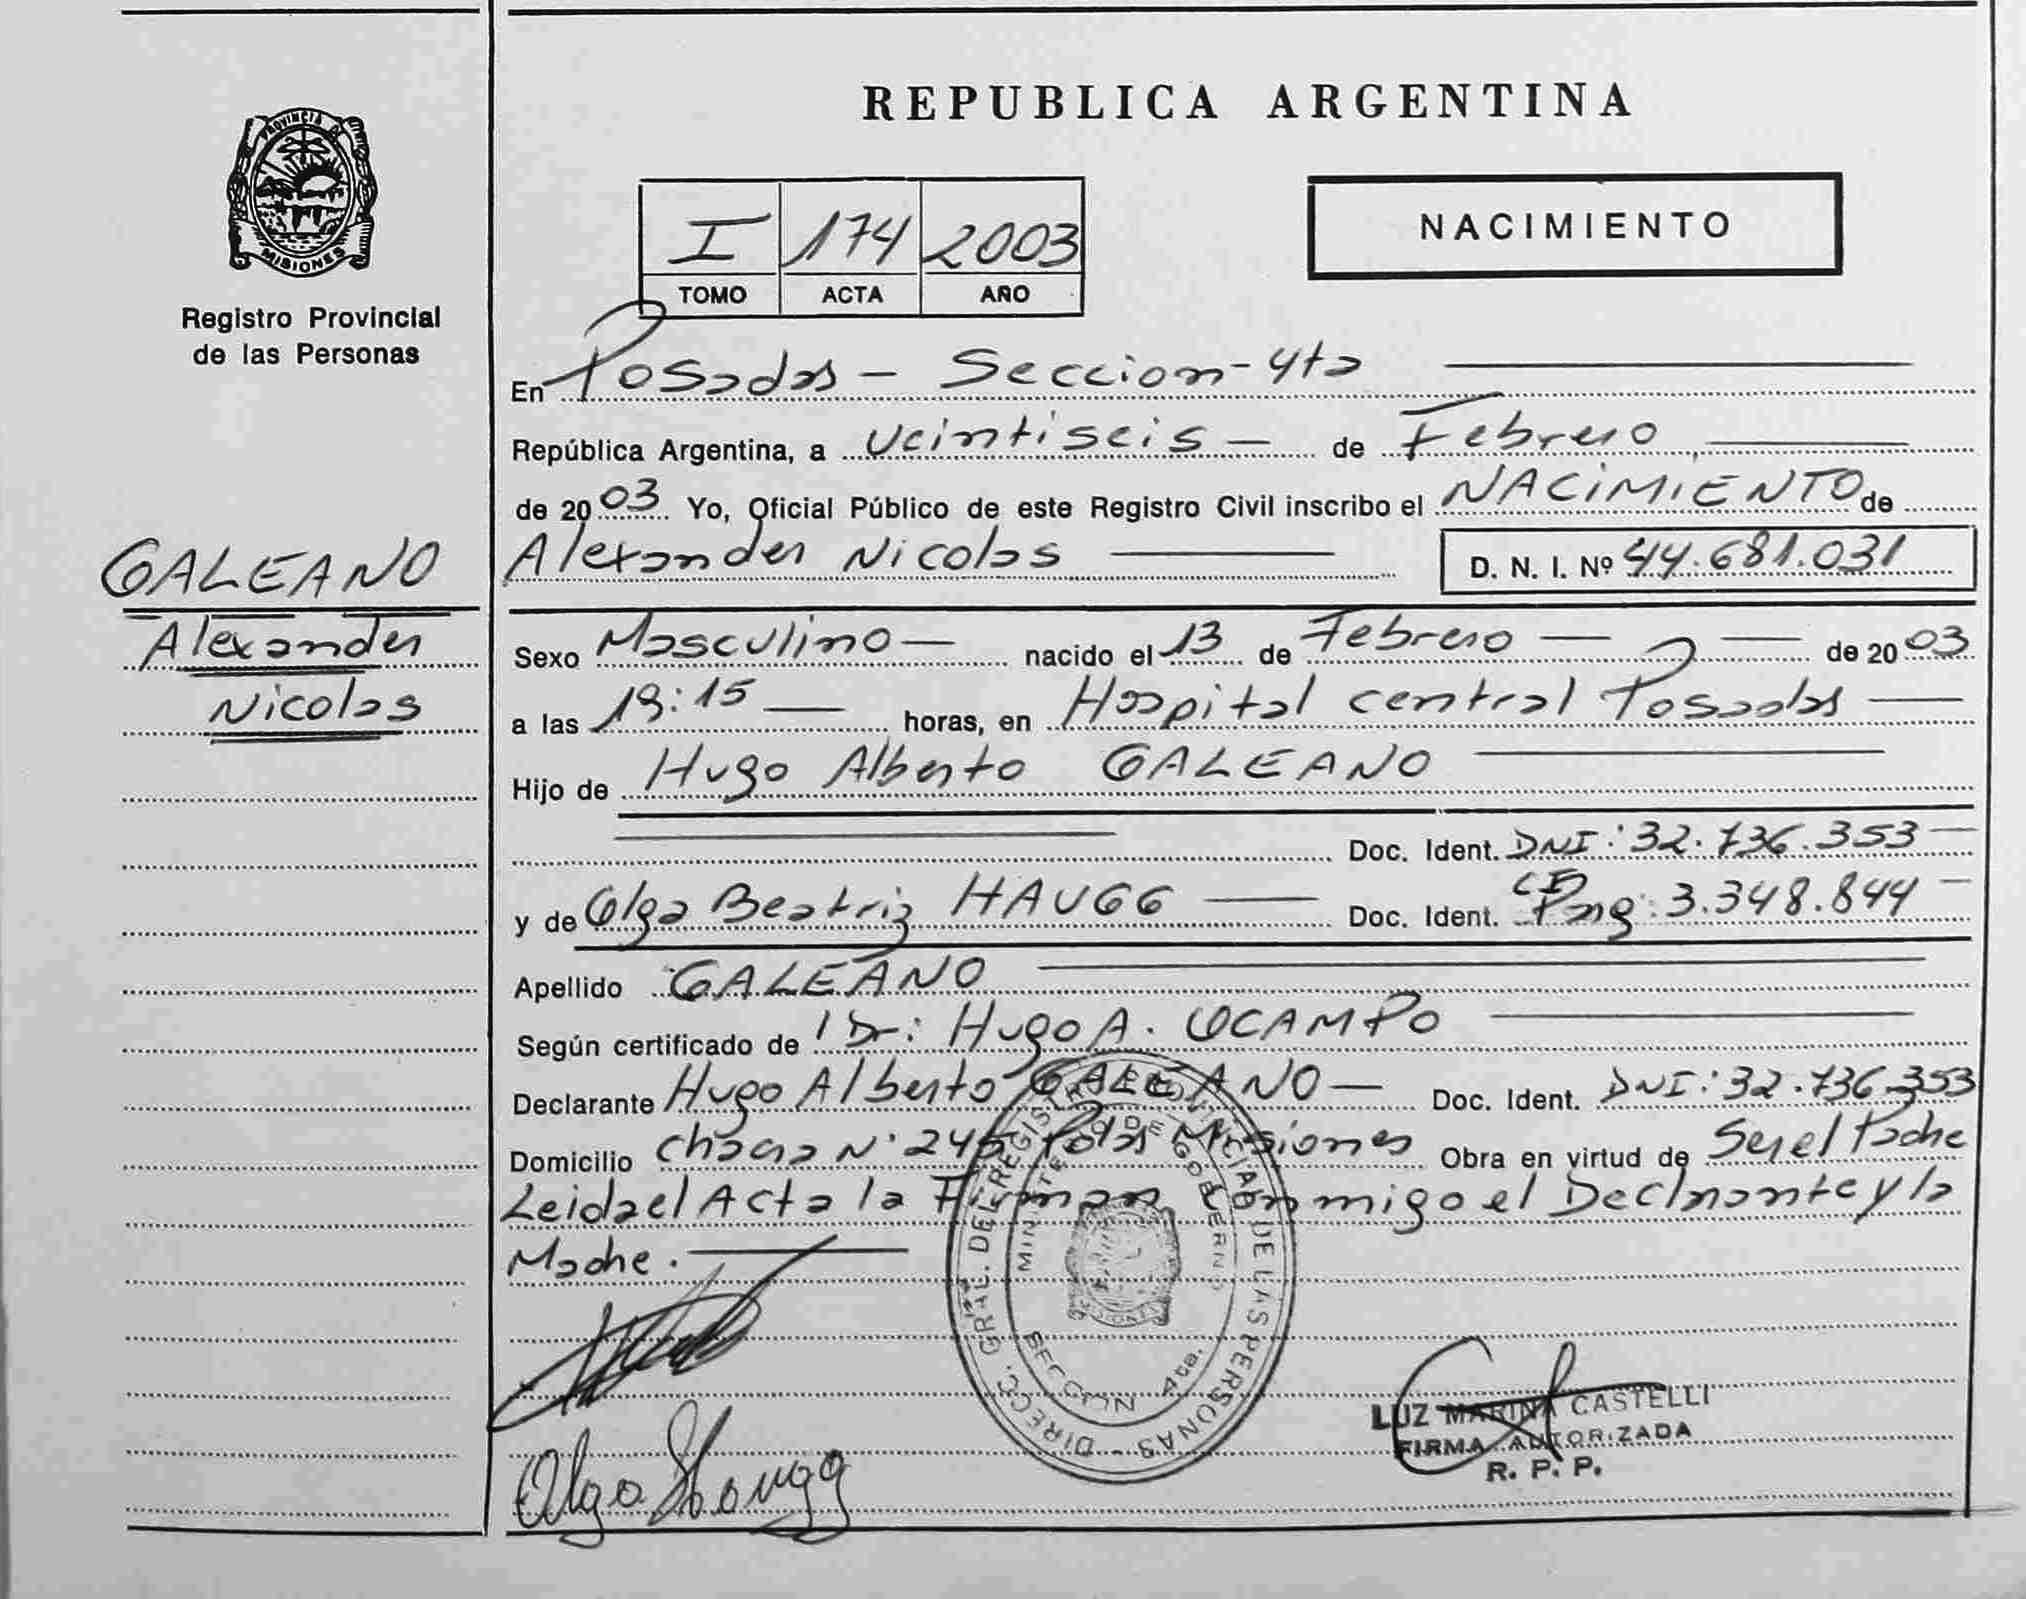 REPUBLICA ARGENTINA
PROVINCIA DE
MISIONES
Registro Provincial
de las Personas
I 174 2003
TOMO ACTA AÑO
NACIMIENTO
En Posadas - Seccion - 4ta
República Argentina, a veintiseis - de Febrero
de 2003 Yo, Oficial Público de este Registro Civil inscribo el NACIMIENTO de
Alexander Nicolas D. N. I. Nº 44.681.031
GALEANO
Alexander
Nicolas
Sexo Masculino - nacido el 13 de Febrero de 2003
a las 19:15 horas, en Hospital central Posadas
Hijo de Hugo Alberto GALEANO
Doc. Ident. DNI: 32.736.353
y de Olga Beatriz HAUGG Doc. Ident. CI Parg: 3.348.844
Apellido GALEANO
Según certificado de Dr: Hugo A. OCAMPO
Declarante Hugo Alberto GALEANO - Doc. Ident. DNI: 32.736.353
Domicilio chacra N° 246 Pdas Misiones Obra en virtud de Ser el Padre
Leida el Acta la Firman Conmigo el Declarante y la
Madre.
DIRECC. GRAL. DEL REGISTRO PROVINCIAL DE LAS PERSONAS
MINISTERIO DE GOBIERNO
SECCION 4ta.
Olga Haugg
LUZ MARINA CASTELLI
FIRMA AUTORIZADA
R. P. P.